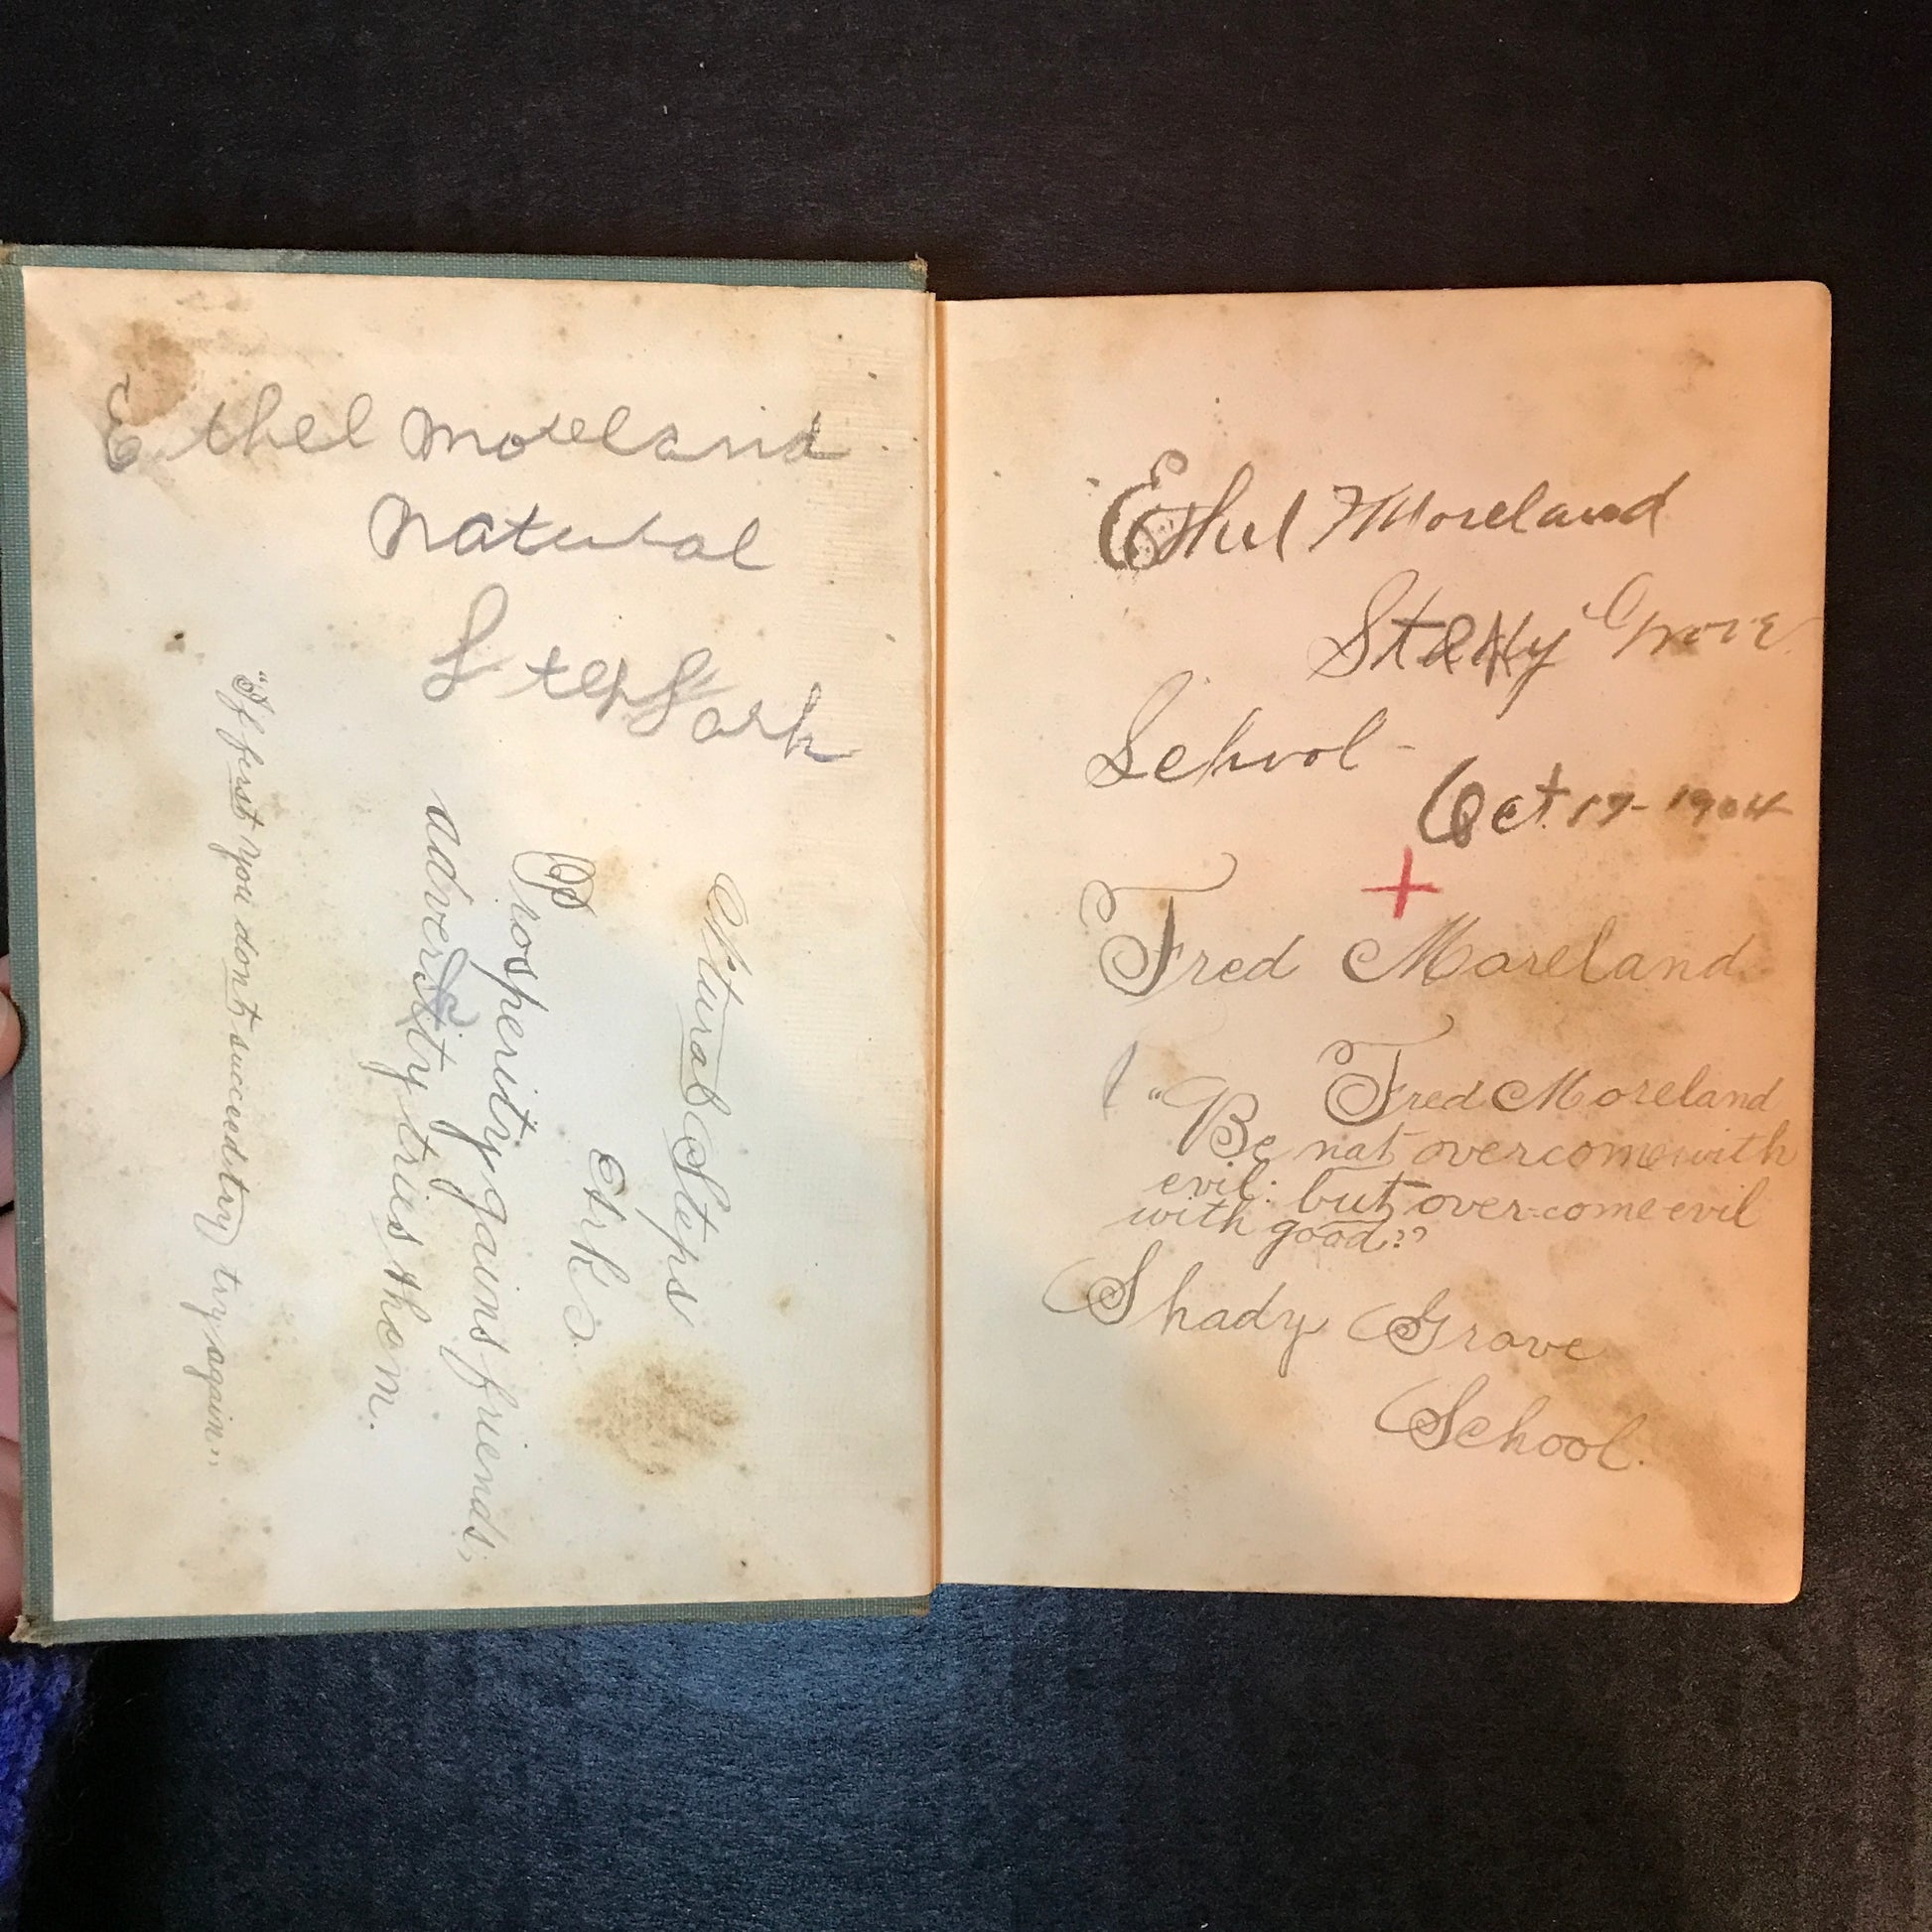 Ethel Moreland
Natural
Steps Ark
Natural Steps
Ark's.
Prosperity gains friends,
adversity tries them.
"If first you don't succeed try try again"
Ethel Moreland
Grove
School-
Oct. 17-1904
Fred Moreland
Fred Moreland
"Be not overcome with
evil: but over-come evil
with good."
Shady Grove
School.